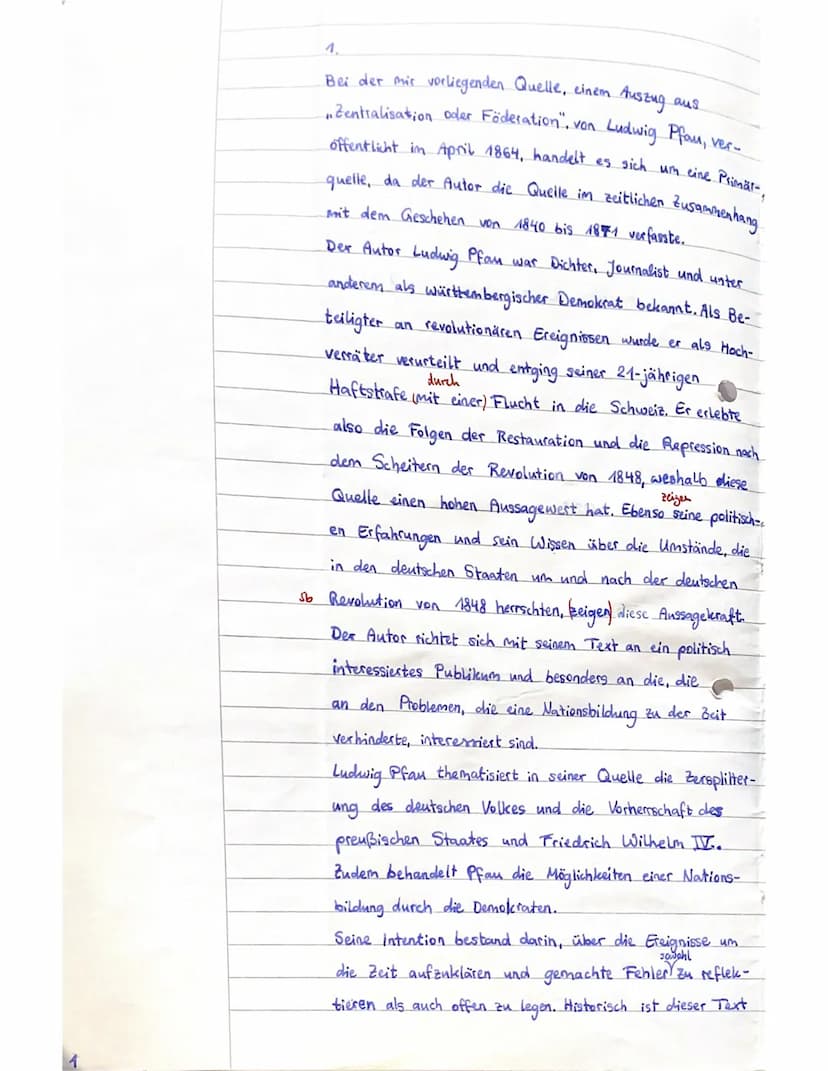 1.
Bei der mir vorliegenden Quelle, einem Auszug aus
„Zentralisation oder Föderation", von Ludwig Pfau, ver-
öffentlicht im April 1864, handelt es sich um eine Primär-
quelle, da der Autor die Quelle im zeitlichen Zusammenhang
mit dem Geschehen von 1840 bis 1871 verfasste.
Der Autor Ludwig Pfau war Dichter, Journalist und unter
anderem als württembergischer Demokrat bekannt. Als Be-
teiligter an revolutionären Ereignissen wurde er als Hoch-
verräter verurteilt und entging seiner 21-jährigen
durch
Haftstrafe (mit einer) Flucht in die Schweiz. Er erlebte
also die Folgen der Restauration und die Repression nach
dem Scheitern der Revolution von 1848, weshalb diese
zeigen
Quelle einen hohen Aussagewert hat. Ebenso seine politisch-
en Erfahrungen und sein Wissen über die Umstände, die
in den deutschen Staaten um und nach der deutschen
Sb Revolution von 1848 herrschten, (zeigen) diese Aussagekraft.
Der Autor richtet sich mit seinem Text an ein politisch
interessiertes Publikum und besonders an die, die
an den Problemen, die eine Nationsbildung zu der Zeit
verhinderte, interessiert sind.
Ludwig Pfau thematisiert in seiner Quelle die Zersplitter-
ung des deutschen Volkes und die Vorherrschaft des
preußischen Staates und Friedrich Wilhelm IV..
Zudem behandelt Pfau die Möglichkeiten einer Nations-
bildung durch die Demokraten.
Seine Intention bestand darin, über die Ereignisse um
sowohl
die Zeit aufzuklären und gemachte Fehler zu reflek-
tieren als auch offen zu legen. Historisch ist dieser Text
1